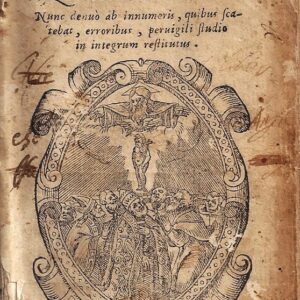 Nunc denuo ab innumeris, quibus sca-
tebat, erroribus, peruigili ſtudio
in integrum reſtitutus.